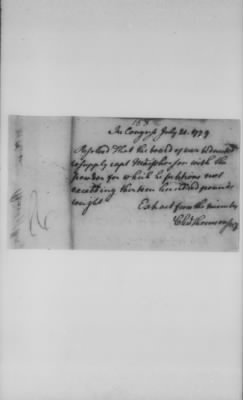 158
In Congress July 21. 1779
Resolved That the board of war be
to supply capt with the
powder for which he petitions not
exceeding thirteen hundred pounds
weight
Extract from the minutes
Cha Thomson secy